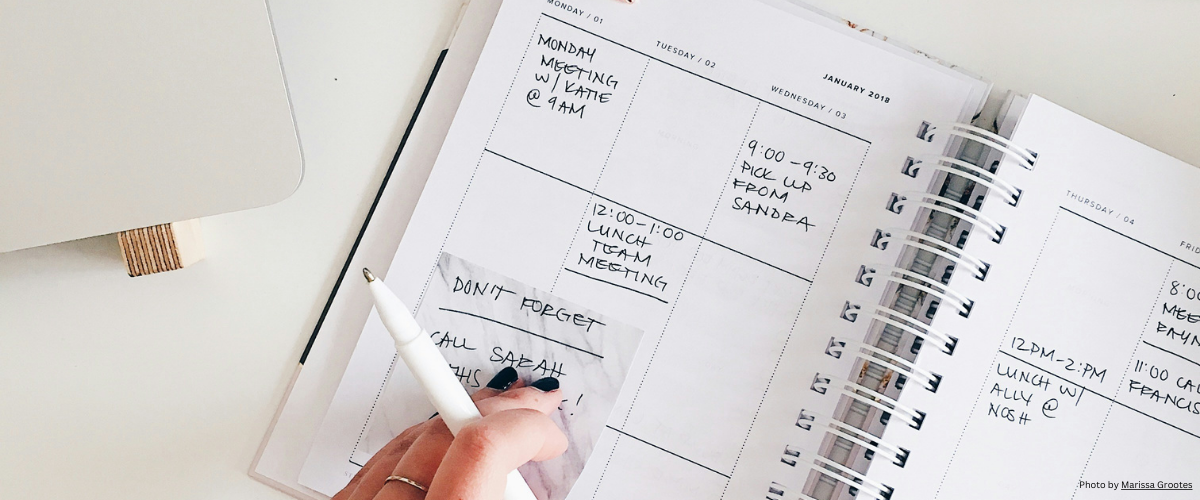 MONDAY / 01
MONDAY
MEETING
W/ KATIE
@ 9AM
TUESDAY / 02
12:00-1:00
LUNCH
TEAM
MEETING
JANUARY 2018
WEDNESDAY / 03
9:00-9:30
PICK UP
FROM
SANDRA
DON'T FORGET
CALL SARAH
THIS
!
THURSDAY / 04
12PM-2:PM
LUNCH W/
ALLY @
NOSH
FRID
8:00
MEE
11:00 CAL
FRANCIS
Photo by Marissa Grootes